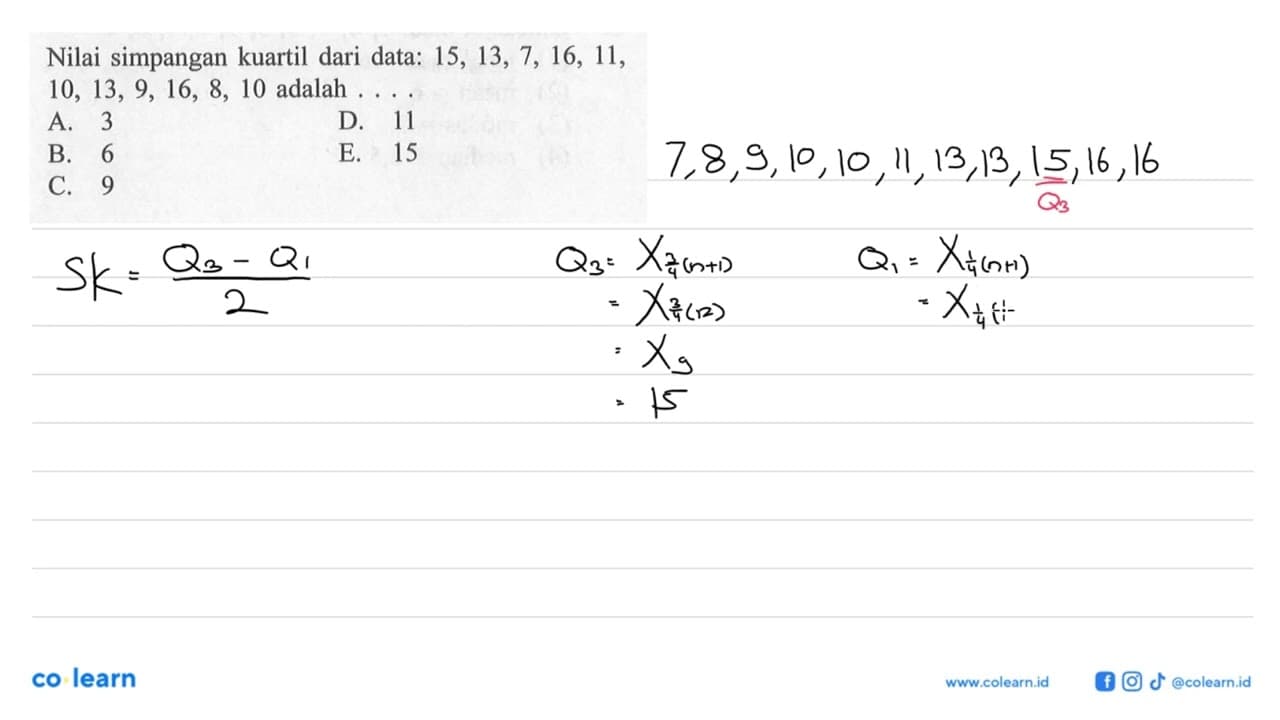 Nilai simpangan kuartil dari data: 15, 13, 7, 16, 11,
10, 13, 9, 16, 8, 10 adalah . . . .
A. 3
B. 6
C. 9
D. 11
E. 15
7, 8, 9, 10, 10, 11, 13, 13, 15, 16, 16
Q3
SK = Q3 - Q1 / 2
Q3 = X 3/4 (n+1)
= X 3/4 (12)
= X9
= 15
Q1 = X 1/4 (n+1)
= X 1/4
co learn
www.colearn.id
@colearn.id